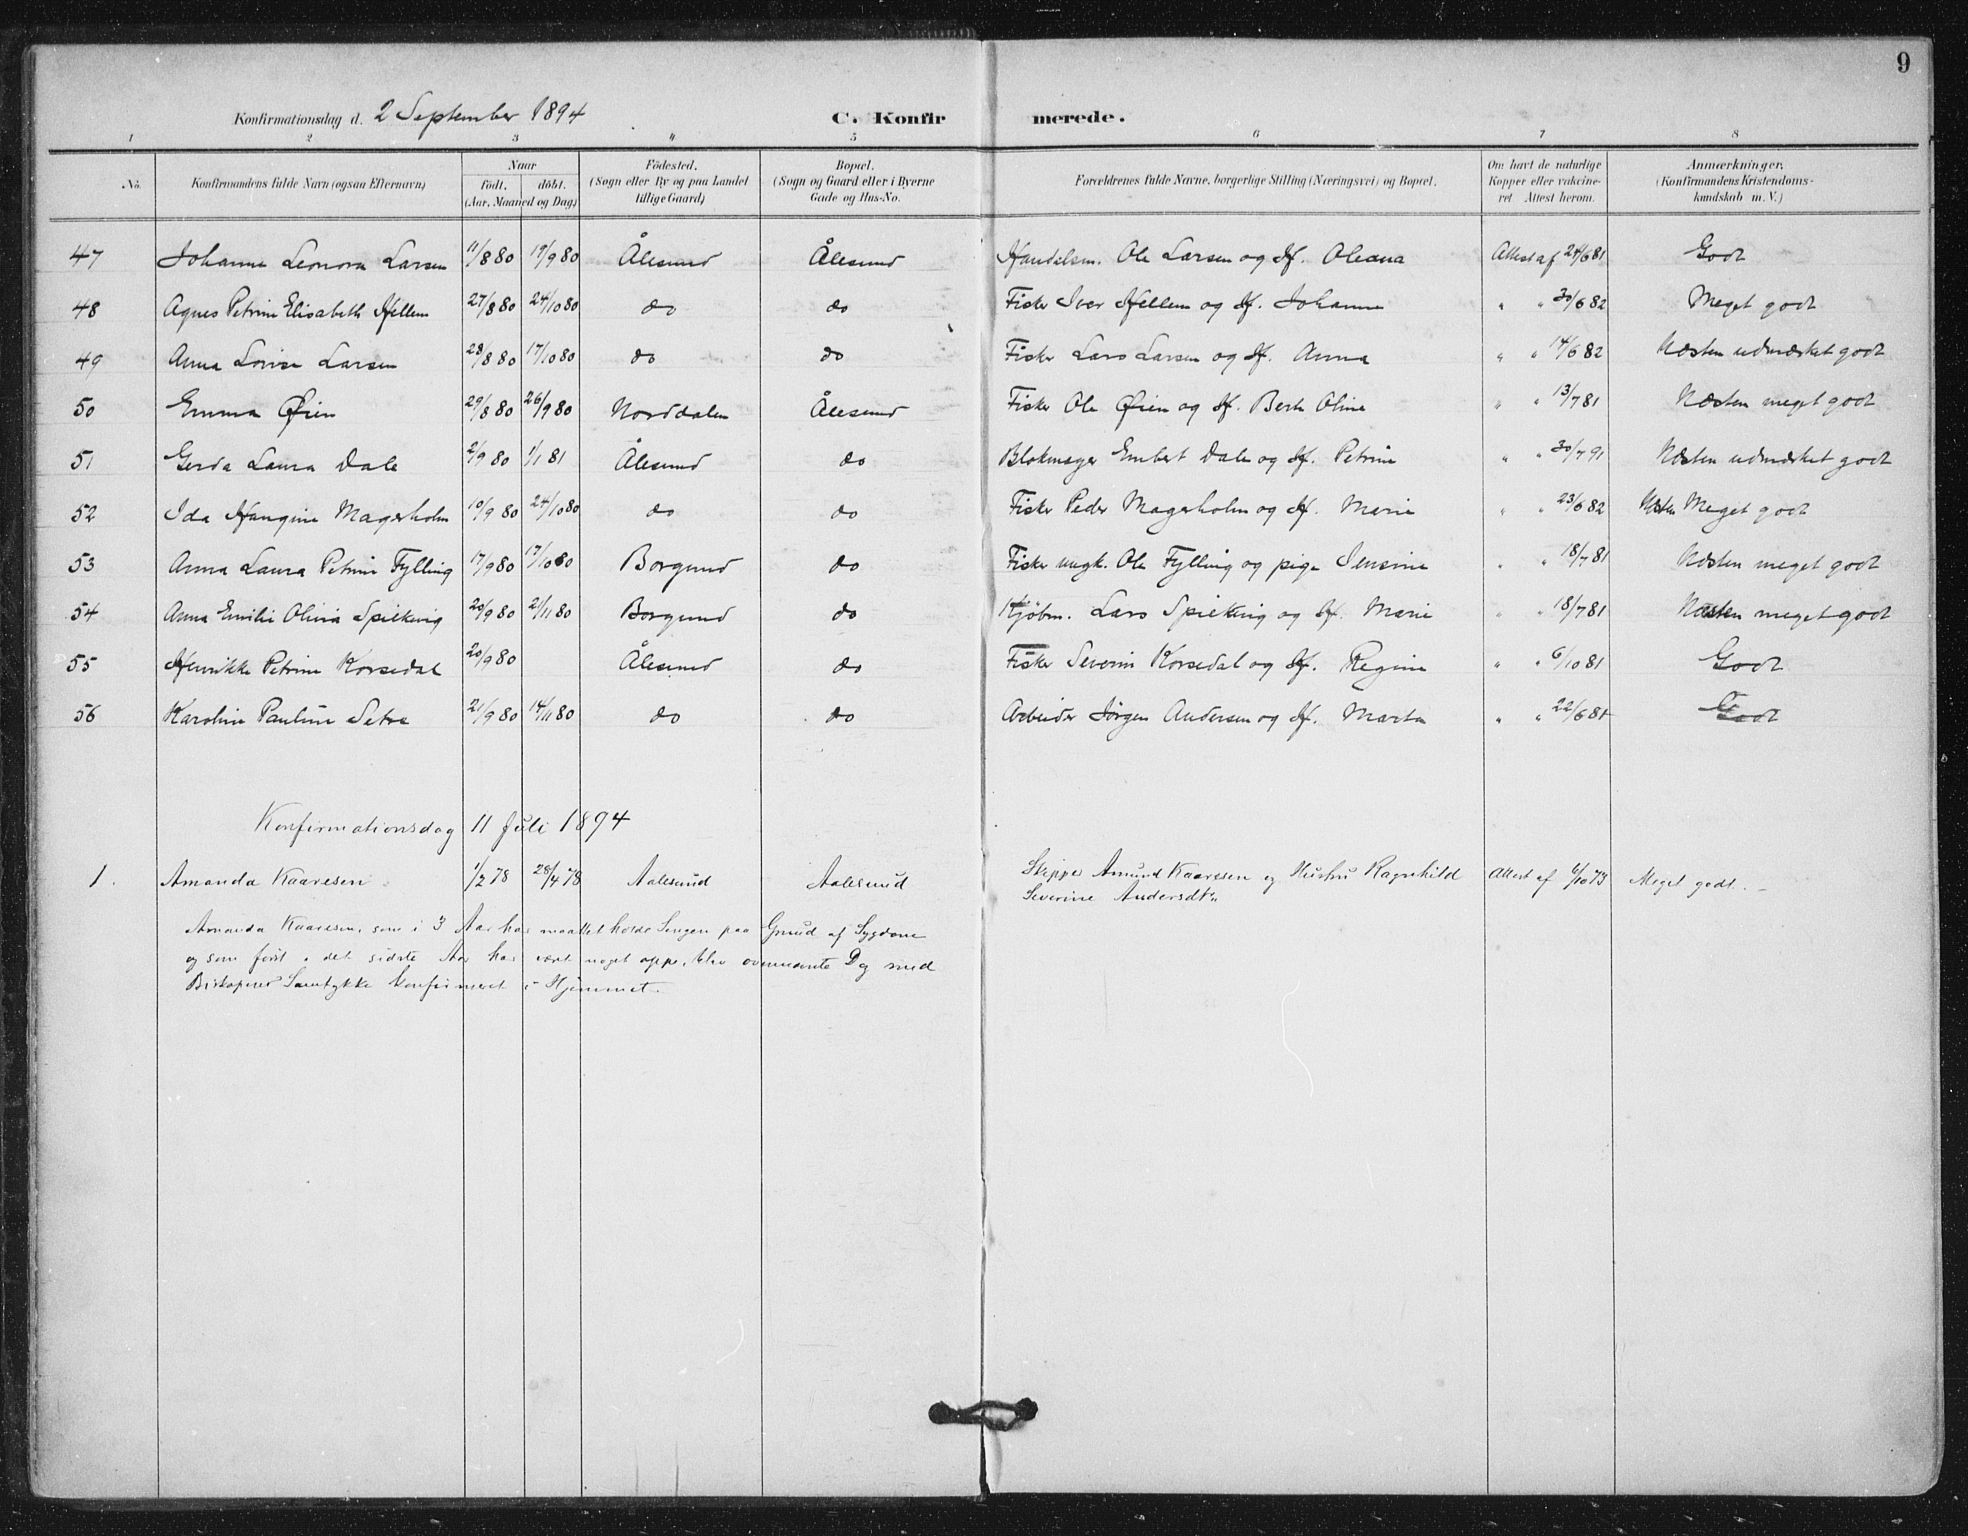 9
Konfirmationsdag d. 2 September 1894 C. Konfir merede.
1 2 3 4 5 6 7 8
No. Konfirmandens fulde Navn (ogsaa Efternavn) Naar født. døbt. (Aar, Maaned og Dag) Fødested. (Sogn eller By og paa Landet tillige Gaard) Bopæl. (Sogn og Gaard eller i Byerne Gade og Hus-No. Forældrenes fulde Navne, borgerlige Stilling (Næringsvei) og Bopæl. Om havt de naturlige Kopper eller vakcineret Attest herom. Anmærkninger. (Konfirmandens Kristendomskundskab m. V.)
47 Johanne Leonora Larsen 11/8 80 19/9 80 Ålesund Ålesund Handelsm. Ole Larsen og H. Oleana Attest af 24/6 81 Godt
48 Agnes Petrine Elisabeth Hellem 27/8 80 24/10 80 do do Fisker Iver Hellem og H. Johanne " " 30/6 82 Meget godt
49 Anna Lovise Larsen 28/8 80 17/10 80 do do Fisker Lars Larsen og H. Anna " " 14/6 82 Næsten udmærket godt
50 Emma Øien 29/8 80 26/9 80 Norddalen Ålesund Fisker Ole Øien og H. Berte Oline " " 13/7 81 Næsten meget godt
51 Gerda Laura Dale 2/9 80 1/1 81 Ålesund do Blokmager Embert Dale og H. Petrine " " 30/7 91 Næsten udmærket godt
52 Ida Hangine Magerholm 10/9 80 24/10 80 do do Fisker Peder Magerholm og H. Marie " " 23/6 82 Næsten Meget godt
53 Anna Laura Petrine Fylling 17/9 80 17/10 80 Borgund do Fisker ungk. Ole Fylling og pige Jensine " " 18/7 81 Næsten meget godt
54 Anna Emilie Olivia Spilking 20/9 80 21/11 80 Borgund do Kjøbm. Lars Spilking og H. Marie " " 18/7 81 Næsten meget godt
55 Henrikke Petrine Korsedal 20/9 80 Ålesund do Fisker Severin Korsedal og H. Regine " " 6/10 81 Godt
56 Karoline Pauline Setre 21/9 80 14/11 80 do do Arbeider Jørgen Andersen og H. Marta " " 22/6 81 Godt
Konfirmationsdag 11 Juli 1894
1. Amanda Kaaresen 1/2 78 28/4 78 Aalesund Aalesund Skipper Amund Kaaresen og Hustru Ragnhild Attest af Meget godt.
Severine Andersdtr
Amanda Kaaresen, som i 3 Aar har maattet holde Sengen paa Grund af Sygdom
og som først i det sidste Aar har været noget oppe, blev ovennævnte Dag med
Biskopens Samtykke konfirmeret i Hjemmet.